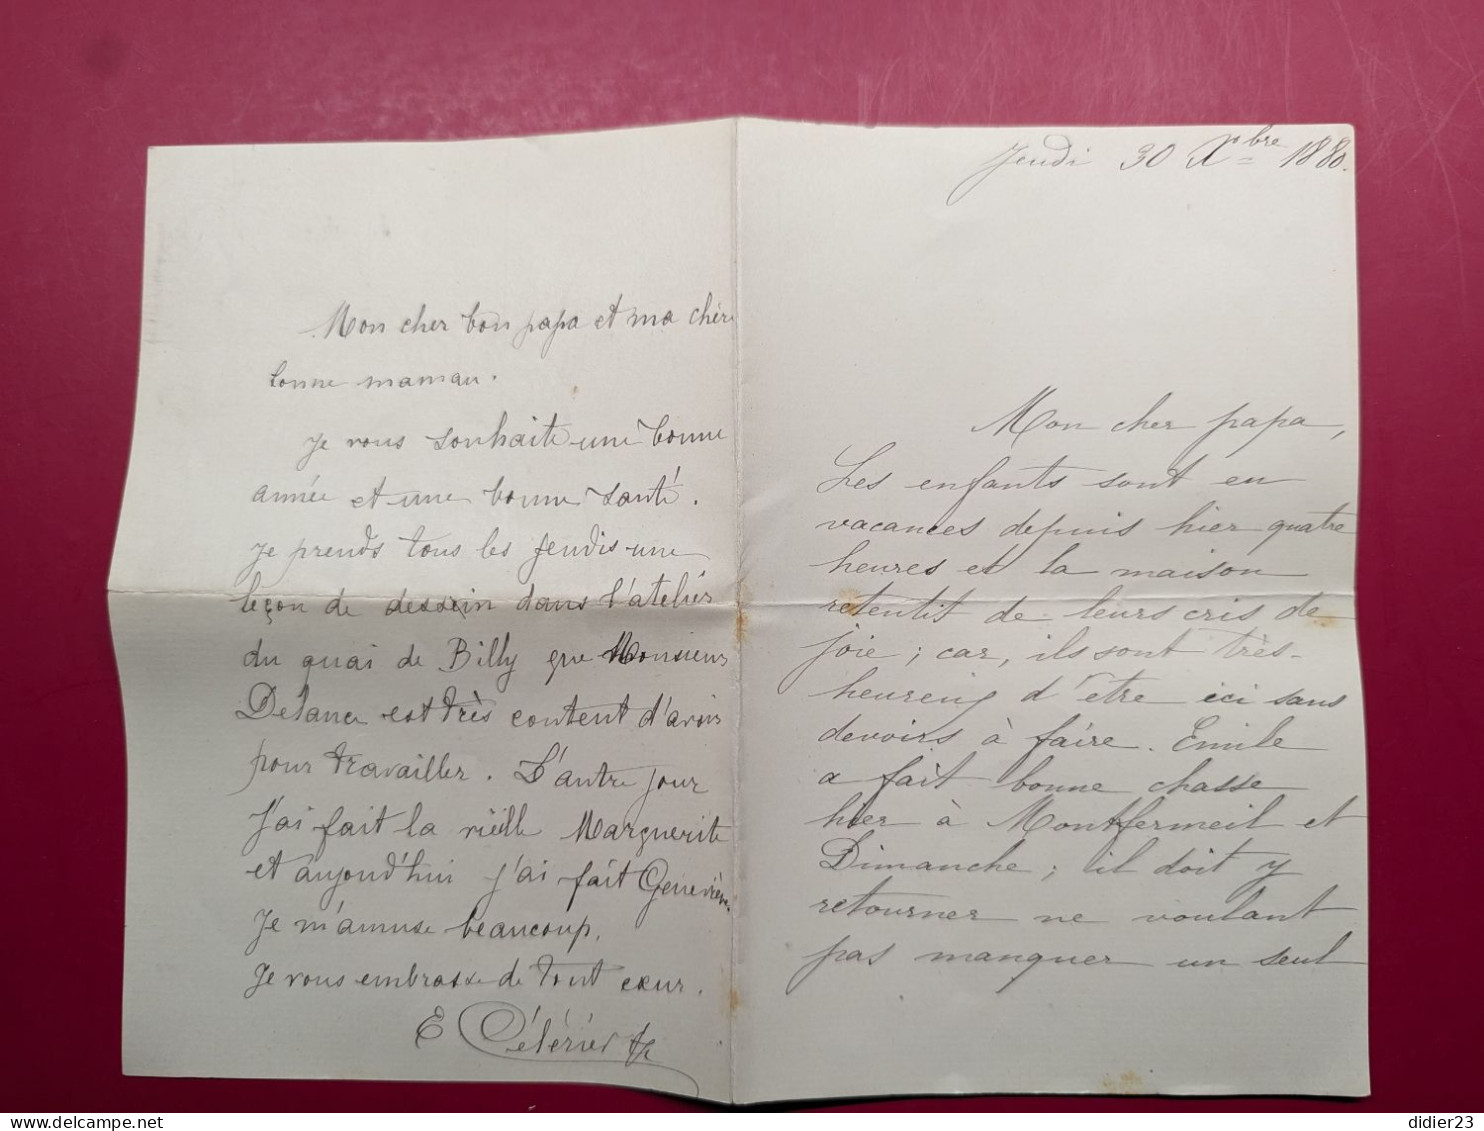 Mon cher bon papa et ma chère
bonne maman.
Je vous souhaite une bonne
année et une bonne santé.
Je prends tous les jeudis une
leçon de dessin dans l'atelier
du quai de Billy que Monsieur
Delance est très content d'avoir
pour travailler. L'autre jour
j'ai fait la vieille Marguerite
et aujourd'hui j'ai fait Geneviève.
Je m'amuse beaucoup.
Je vous embrasse de tout cœur.
E Célérier
Jeudi 30 Xbre 1880.
Mon cher papa,
Les enfants sont en
vacances depuis hier quatre
heures et la maison
retentit de leurs cris de
joie ; car, ils sont très-
heureux d'être ici sans
devoirs à faire. Emile
a fait bonne chasse
hier à Montfermeil et
Dimanche ; il doit y
retourner ne voulant
pas manquer un seul
didier23